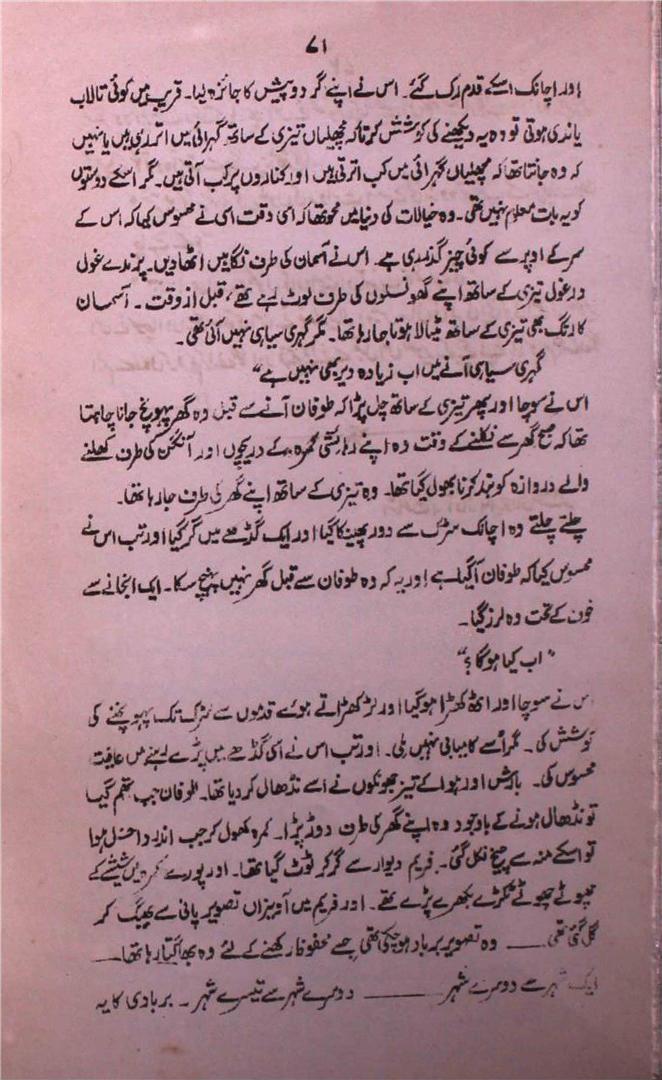 ۷۱
اور اچانک اسکے قدم رک گئے۔ اس نے اپنے گرد و پیش کا جائزہ لیا۔ قریب میں کوئی تالاب
یا ندی ہوتی تو وہ یہ دیکھنے کی کوشش کرتا کہ مچھلیاں تیزی کے ساتھ گہرائی میں اتر رہی ہیں یا نہیں
کہ وہ جانتا تھا کہ مچھلیاں گہرائی میں کب اترتی ہیں اور کناروں پر کب آتی ہیں۔ مگر اسکے دوستوں
کو یہ بات معلوم نہیں تھی۔ وہ خیالات کی دنیا میں محو تھا کہ اسی وقت اسی نے محسوس کیا کہ اس کے
سر کے اوپر سے کوئی چیز گذر رہی ہے۔ اس نے آسمان کی طرف نگاہیں اٹھا دیں۔ پرندے غول
در غول تیزی کے ساتھ اپنے گھونسلوں کی طرف لوٹ رہے تھے، قبل از وقت۔ آسمان
کا رنگ بھی تیزی کے ساتھ مٹیالا ہوتا جا رہا تھا۔ مگر گہری سیاہی نہیں آئی تھی۔
گہری سیاہی آنے میں اب زیادہ دیر بھی نہیں ہے"
اس نے سوچا اور پھر تیزی کے ساتھ چل پڑا کہ طوفان آنے سے قبل وہ گھر پہونچ جانا چاہتا
تھا کہ صبح گھر سے نکلنے کے وقت وہ اپنے رہائشی کمرہ کے دریچوں اور آنگن کی طرف کھلنے
والے دروازہ کو بند کرنا بھول گیا تھا۔ وہ تیزی کے ساتھ اپنے گھر کی طرف جا رہا تھا۔
چلتے چلتے وہ اچانک سڑک سے دور پھینکا گیا اور ایک گڈھے میں گر گیا اور تب اس نے
محسوس کیا کہ طوفان آگیا ہے اور یہ کہ وہ طوفان سے قبل گھر نہیں پہنچ سکا۔ ایک انجانے سے
خوف کے تحت وہ لرز گیا۔
"اب کیا ہوگا؟"
اس نے سوچا اور اٹھ کھڑا ہوگیا اور لڑکھڑاتے ہوئے قدموں سے سڑک تک پہونچنے کی
کوشش کی۔ مگر اُسے کامیابی نہیں ملی۔ اور تب اس نے اسی گڈھے میں پڑے رہنے میں عافیت
محسوس کی۔ بارش اور ہوا کے تیز جھونکوں نے اسے نڈھال کر دیا تھا۔ طوفان جب تھم گیا
تو نڈھال ہونے کے باوجود وہ اپنے گھر کی طرف دوڑ پڑا۔ کمرہ کھول کر جب اندر داخل ہوا
تو اسکے منہ سے چیخ نکل گئی۔ فریم دیوار سے گر کر ٹوٹ گیا تھا۔ اور پورے کمرہ میں شیشے کے
چھوٹے چھوٹے ٹکڑے بکھرے پڑے تھے۔ اور فریم میں آویزاں تصویر پانی سے بھیگ کر
گل گئی تھی ــــ وہ تصویر برباد ہو چکی تھی جسے محفوظ رکھنے کے لئے وہ بھاگتا رہا تھا ــــ
ایک شہر سے دوسرے شہر ــــــــ دوسرے شہر سے تیسرے شہر۔ بربادی کا یہ